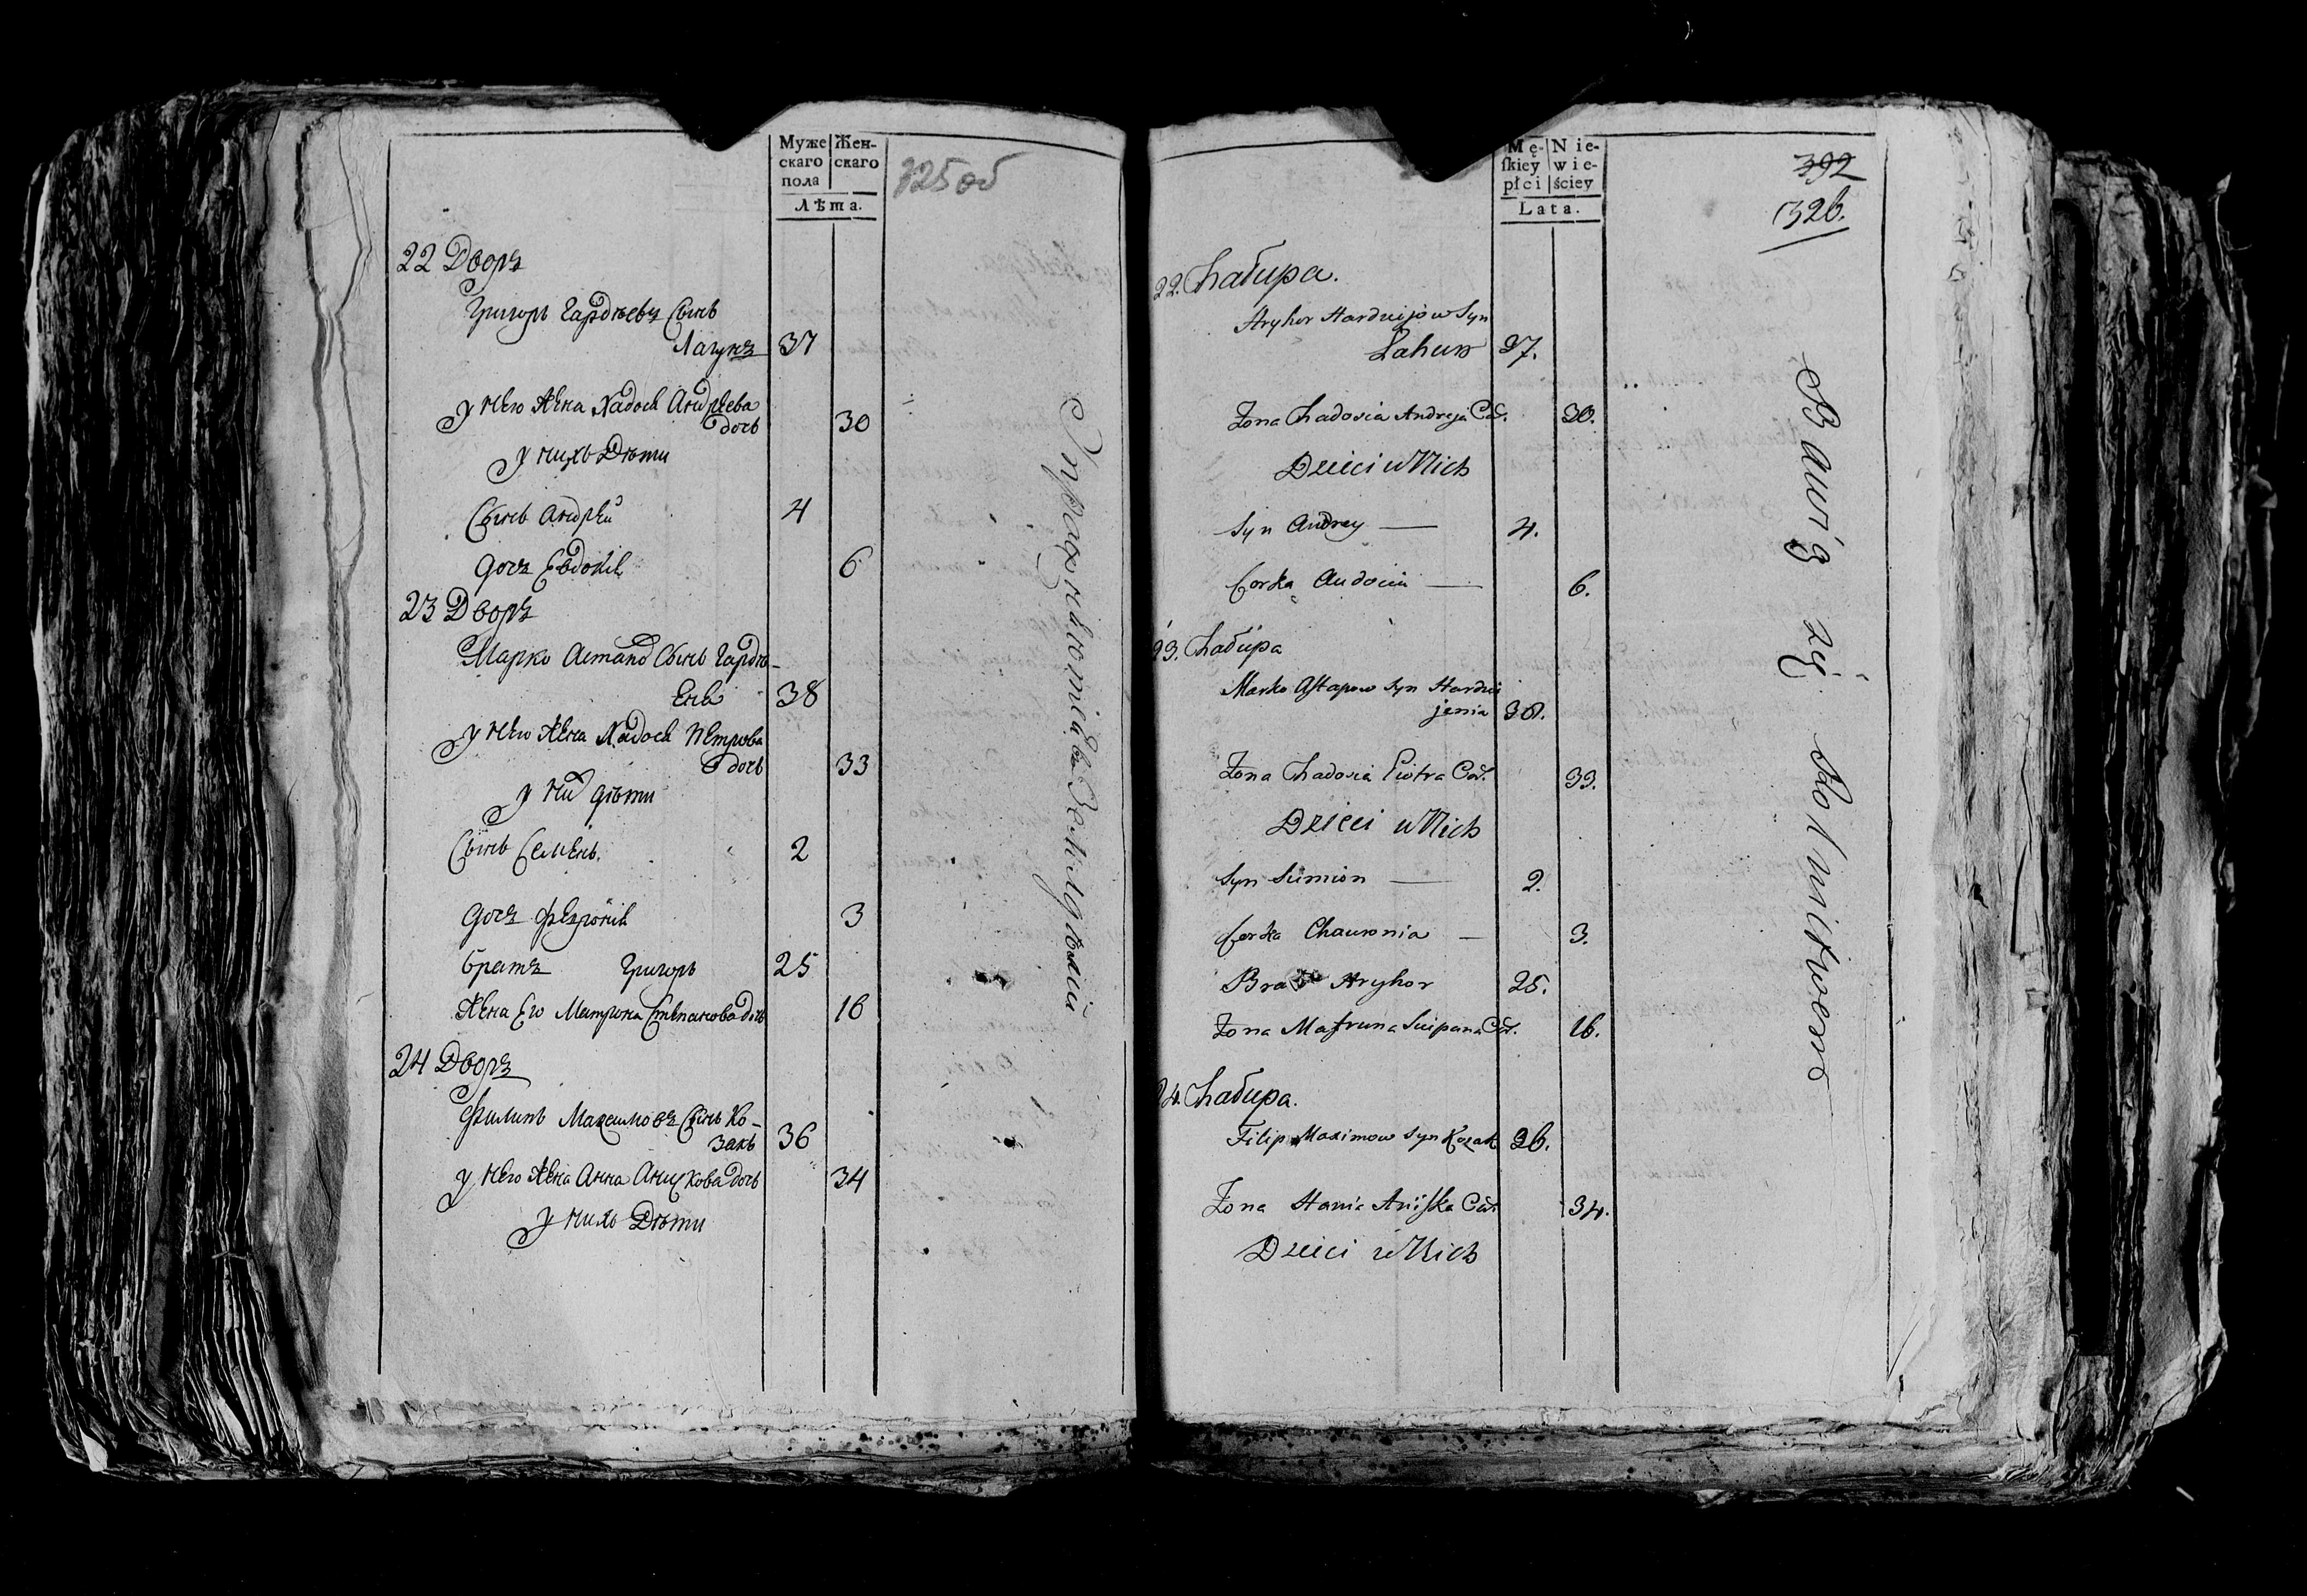 Муже Жен-
скаго скаго
пола
Лѣта.
325 об
22 Дворъ
Григорь Гардѣевъ Сынъ
Лагунъ 37
у него жена Хадося Андреева
дочь 30
у нихъ Дѣти
Сынъ Андрей 4
дочь Евдокія 6
23 Дворъ
Марко Астапов Сынъ Гардѣ-
еня 38
у него жена Хадося Петрова
дочь 33
у них дѣти
Сынъ Семенъ. 2
дочь Феуронія 3
братъ Григорь 25
жена Его Матрона Степанова дочь 16
24 Дворъ
Филипъ Максимовъ Сынъ Ко-
закъ 36
у него жена Анна Анискова дочь 34
у нихъ Дѣти
Mę- Nie-
skiey wie-
płci ściey
Lata.
392
326.
22. Chałupa.
Hryhor Hardziejow Syn
Łahun 37.
Zona Chadosia Andreja Cor. 30.
Dzieci u Nich
Syn Andrey — 4.
Corka Audocia — 6.
23. Chałupa
Marko Astapow Syn Hardzie
jenia 38.
Zona Chadosia Piotra Cor. 33.
Dzieci u Nich
Syn Siemion — 2.
Corka Chauronia — 3.
Brat Hryhor 25.
Zona Matruna Sciepana Cor. 16.
24. Chałupa.
Filip Maximow Syn Kozak 36.
Zona Hania Aniska Cor. 34.
Dzieci u Nich